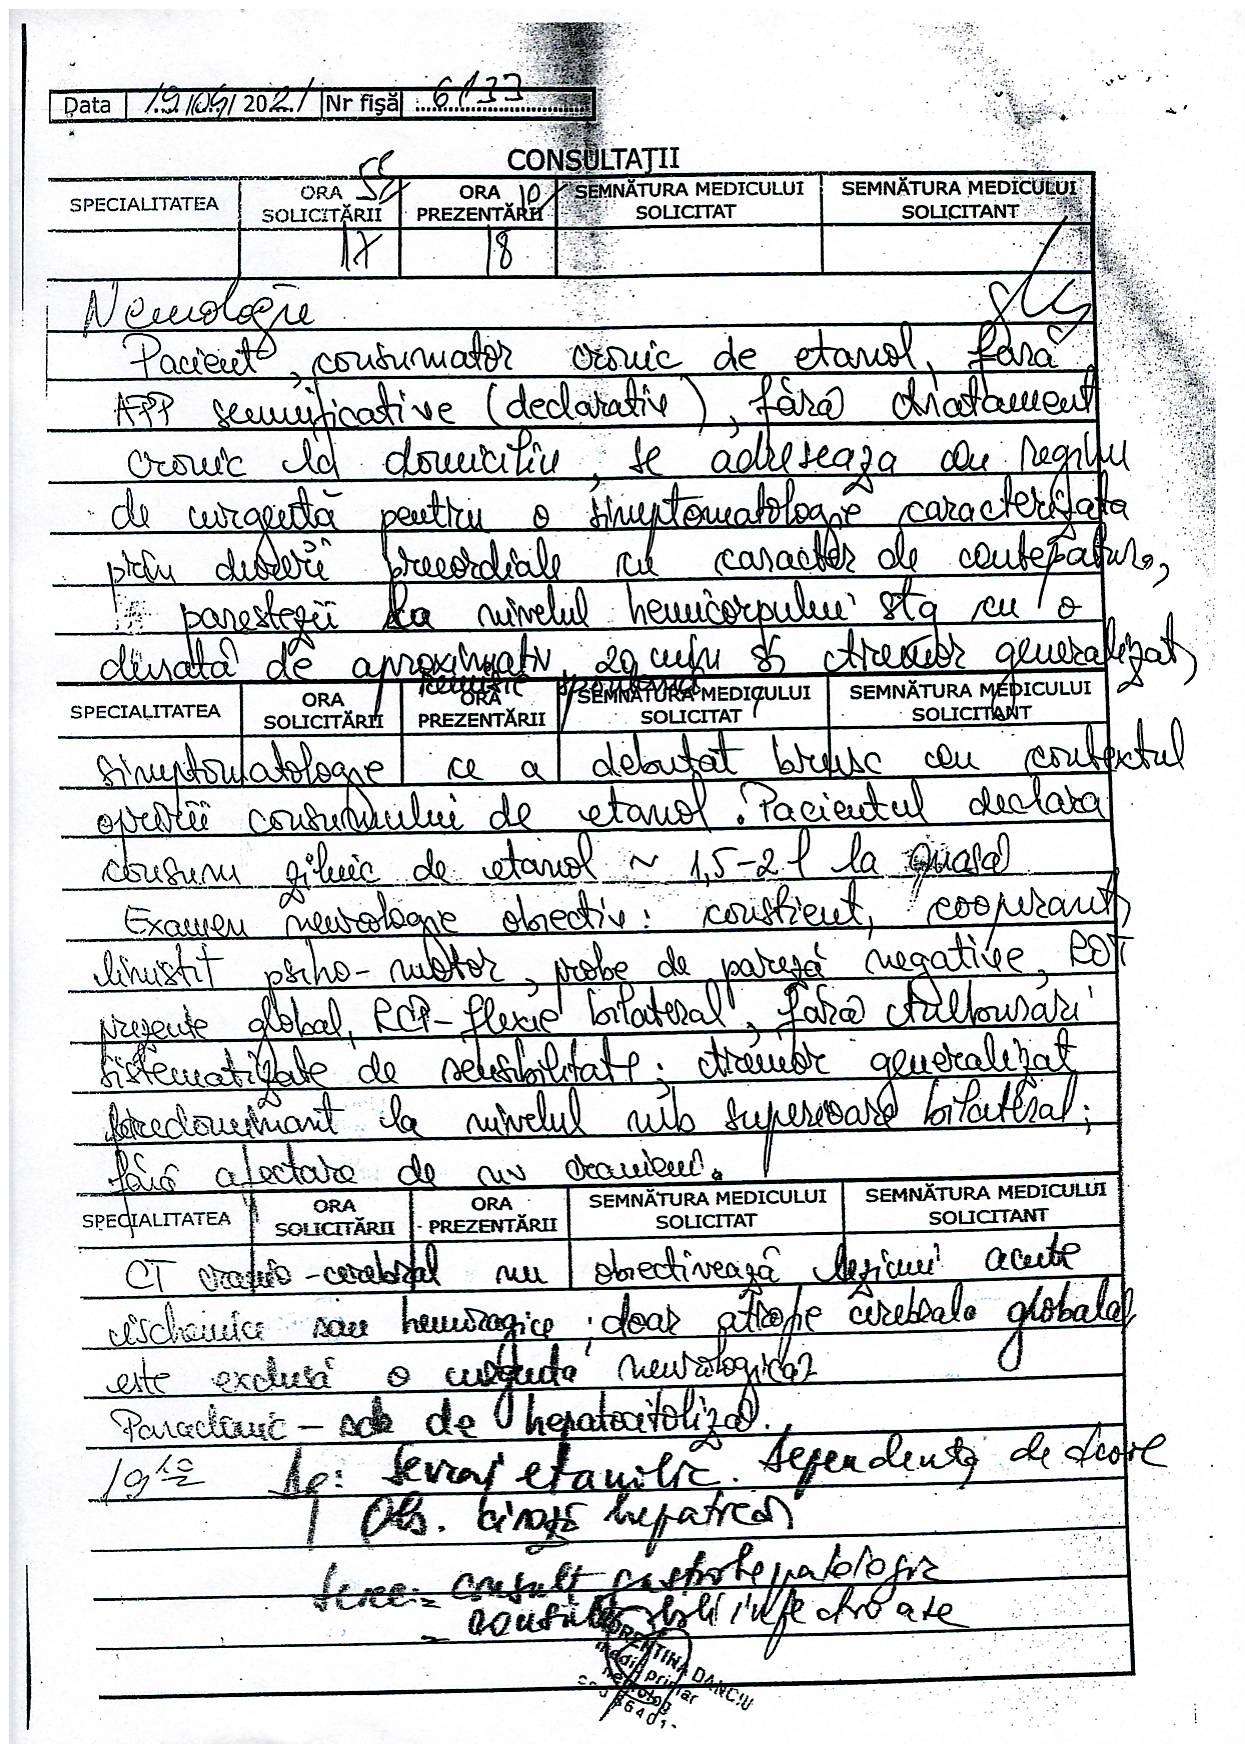 Data 19/04/2021 Nr fişă 6133
CONSULTAŢII
SPECIALITATEA ORA SOLICITĂRII ORA PREZENTĂRII SEMNĂTURA MEDICULUI SOLICITAT SEMNĂTURA MEDICULUI SOLICITANT
17 55 18 10
Neurologie
Pacient, consumator cronic de etanol, fără
APP semnificative (declarativ), fără tratament
cronic la domiciliu, se adresează în regim
de urgență pentru o simptomatologie caracterizată
prin dureri precordiale cu caracter de
parestezii la nivelul hemicorpului stg cu o
durată de aproximativ 20 min și tremor generalizat,
remisie spontană
SPECIALITATEA ORA SOLICITĂRII ORA PREZENTĂRII SEMNĂTURA MEDICULUI SOLICITAT SEMNĂTURA MEDICULUI SOLICITANT
simptomatologie ce a debutat brusc în contextul
opririi consumului de etanol. Pacientul declară
consum zilnic de etanol ~ 1,5-2 l la
Examen neurologic obiectiv: conștient, cooperant,
liniștit psiho-motor, probe de pareză negative, ROT
prezente global, RCP-flexie bilateral, fără tulburări
sistematizate de sensibilitate; tremor generalizat
predominant la nivelul mb superioare bilateral;
fără afectare de nv cranieni.
SPECIALITATEA ORA SOLICITĂRII ORA PREZENTĂRII SEMNĂTURA MEDICULUI SOLICITAT SEMNĂTURA MEDICULUI SOLICITANT
CT cranio-cerebral nu obiectivează leziuni acute
ischemice sau hemoragice; doar atrofie cerebrală globală,
este exclusă o urgență neurologică
Paraclinic - sdr de hepatocitoliză.
19 10 Dg: Sevraj etanilic. Dependență de alcool
Obs. ciroză hepatică
Rec: - consult gastrohepatologie
- consult boli infecțioase
FLORENTINA DANCIU
medic primar
neurolog